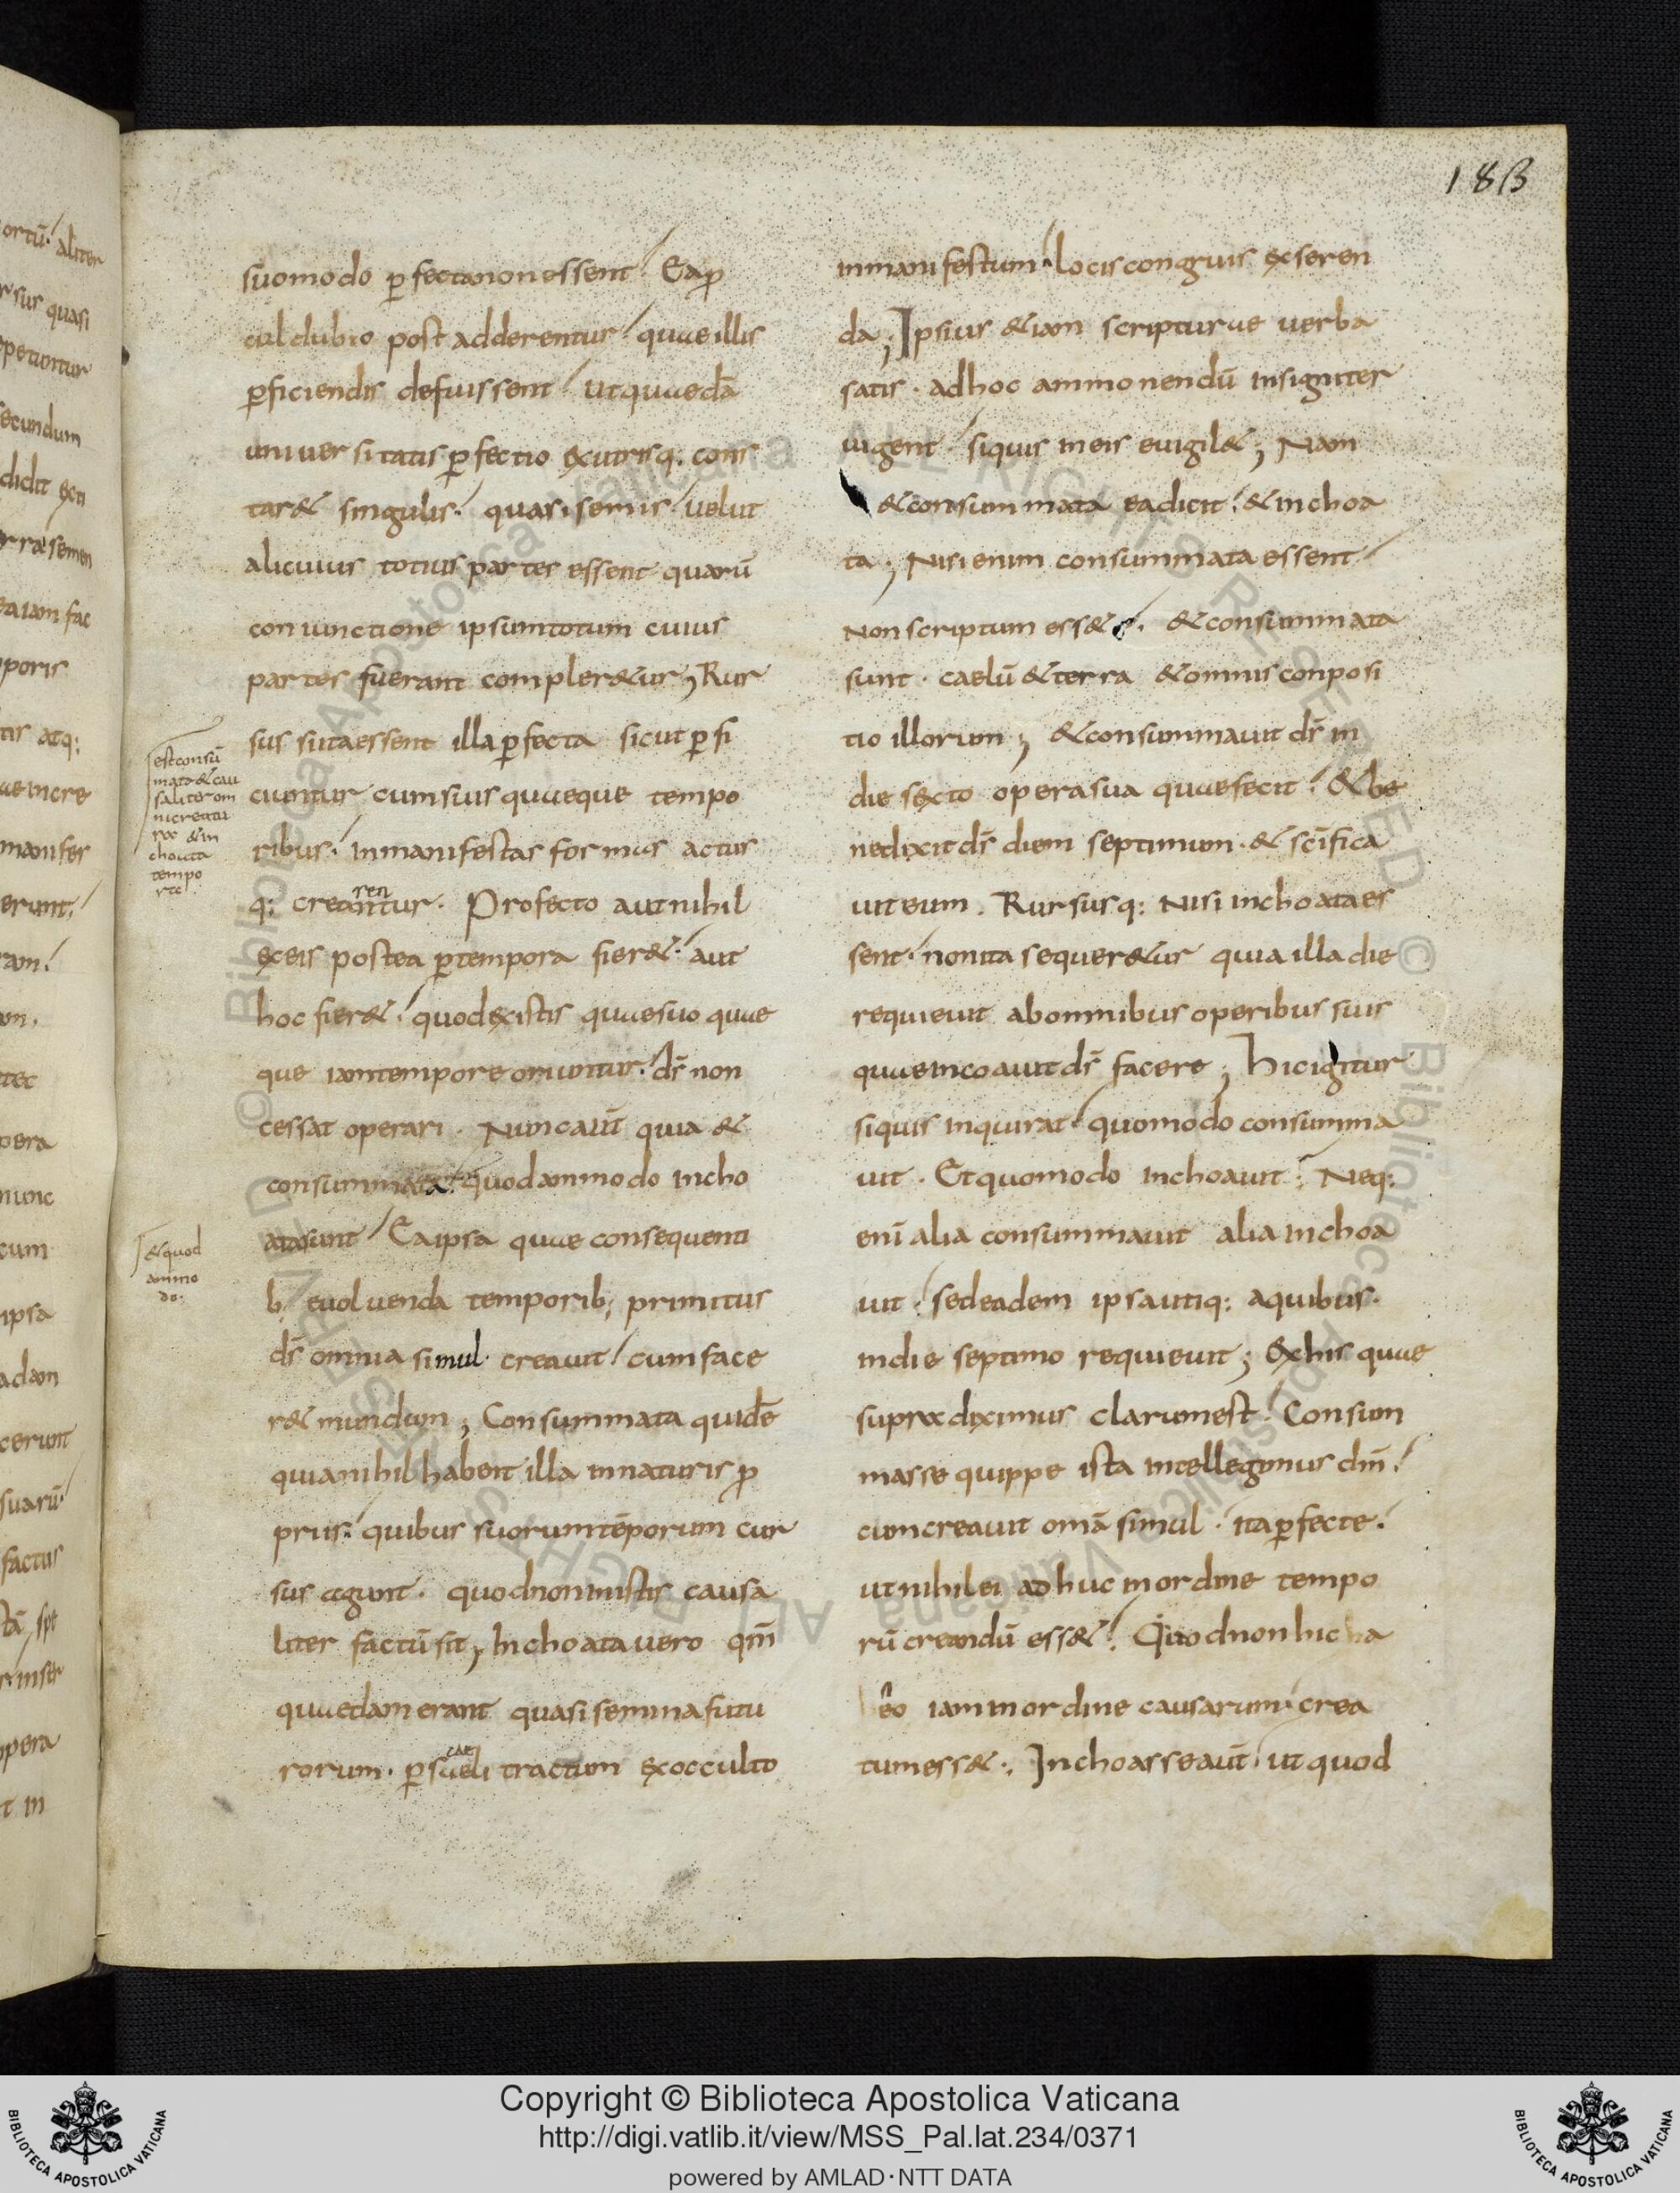 183
suomodo ꝑfectanonessent Eaꝓ
culdubio post adderentur quae illis
ꝑficiendis defuissent utquaedā
uniuersitatis ꝑfectio exutrisq: cons
tar& singulis quasi semis uelut
alicuius totius partes essent quarū
coniunctione ipsumtotum cuius
partes fuerant compler&ur; Rur
sus siitaessent illaꝑfecta sicut ꝑfi
ciuntur cumsuisquaeque tempo
ribus inmanifestas formas actus
q: creantur ren. Profecto autnihil
exeis postea ꝑtempora fier& aut
hoc fier& quodexistis quaesuo quae
que iamtempore oriuntur dr̄ non
cessat operari. Nuncaūt quia &
consummata quodammodo incho
atasunt Eaipsa quae consequenti
b; euoluenda temporib; primitus
ds̄ omnia simul creauit cumface
r& mundum; Consummata quidē
quianihilhabent illa innaturis ꝓ
priis quibus suorumtēporum cur
sus agunt. quodnoninistis causa
liter factūsit; Inchoatauero qm̄
quaedamerant quasiseminafutu
rorum. ꝑsaeli cae tractum exocculto
est consū
mata & cau
saliter om
nicreatu
ra & in
choata
tempo
rte
& quod
ammo
do:
inmanifestum locis congruis exseren
da; Ipsius &iam scripturae uerba
satis. adhoc ammonendū insigniter
uigent siquis ineis euigil&; Nam
&consummata eadicit &inchoa
ta; Nisienim consummataessent
Nonscriptum ess&. &consummata
sunt. caelū &terra &omnis conposi
tio illorum; &consummauit ds̄ in
die sexto operasua quaefecit &be
nedixit ds̄ diem septimum. & scīfica
uiteum. Rursusq: Nisi inchoataes
sent. nonita sequer&ur quia illa die
requieuit abomnibus operibus suis
quaeincoauit ds̄ facere; hicigitur
siquis inquirat quomodo consumma
uit. Etquomodo inchoauit; Neq:
enī alia consummauit alia inchoa
uit. sedeadem ipsautiq: aquibus.
indie septimo requieuit; Exhis quae
supra diximus clarumest. Consum
masse quippe ista intellegimus dm̄
cumcreauit omā simul. itaꝑfecte
utnihilei adhuc inordine tempo
rū creandū ess&. Quodnonhic ha
ēo iaminordine causarum crea
tumess&. Inchoasseaūt ut quod
Copyright © Biblioteca Apostolica Vaticana
http://digi.vatlib.it/view/MSS_Pal.lat.234/0371
powered by AMLAD·NTT DATA
BIBLIOTECA APOSTOLICA VATICANA
BIBLIOTECA APOSTOLICA VATICANA